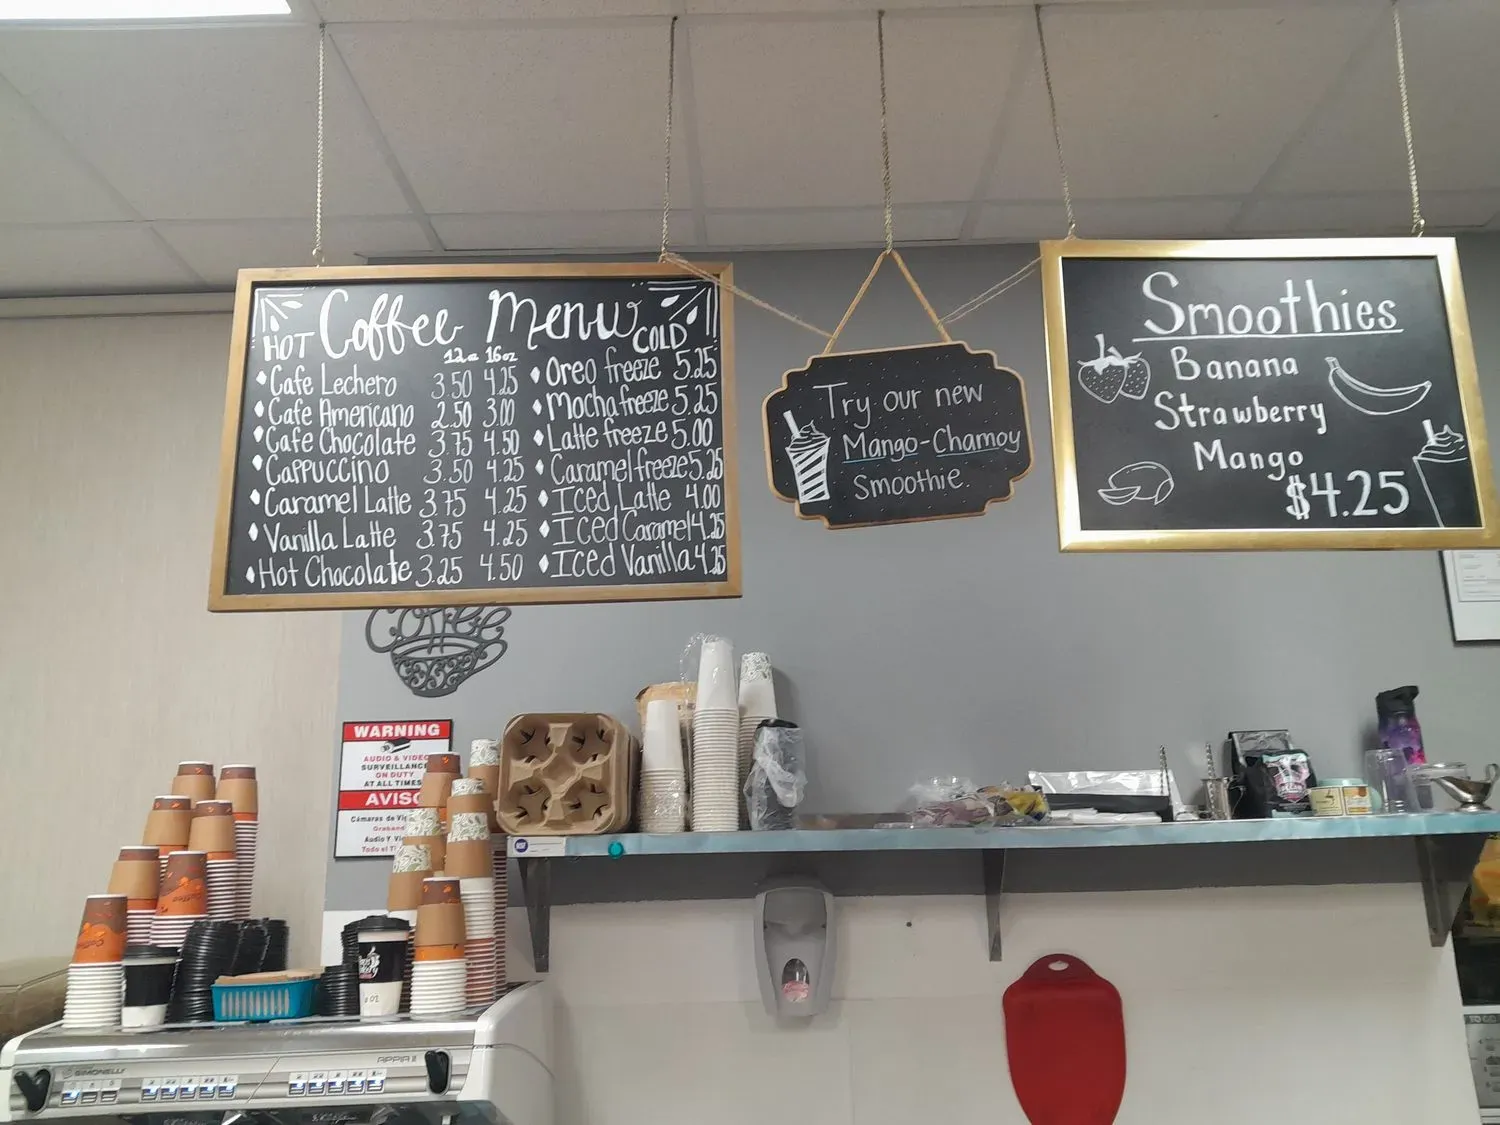 Coffee Menu
HOT
COLD
12oz 16oz
Cafe Lechero 3.50 4.25
Cafe Americano 2.50 3.00
Cafe Chocolate 3.75 4.50
Cappuccino 3.50 4.25
Caramel Latte 3.75 4.25
Vanilla Latte 3.75 4.25
Hot Chocolate 3.25 4.50
Oreo freeze 5.25
Mocha freeze 5.25
Latte freeze 5.00
Caramel freeze 5.25
Iced Latte 4.00
Iced Caramel 4.25
Iced Vanilla 4.25
Try our new
Mango-Chamoy
Smoothie.
Smoothies
Banana
Strawberry
Mango
$4.25
Coffee
WARNING
AUDIO & VIDEO
SURVEILLANCE
ON DUTY
AT ALL TIMES
AVISO
Cámaras de
Audio Y
Todo el
NSF
SIMONELLI
APPIA II
TO GO